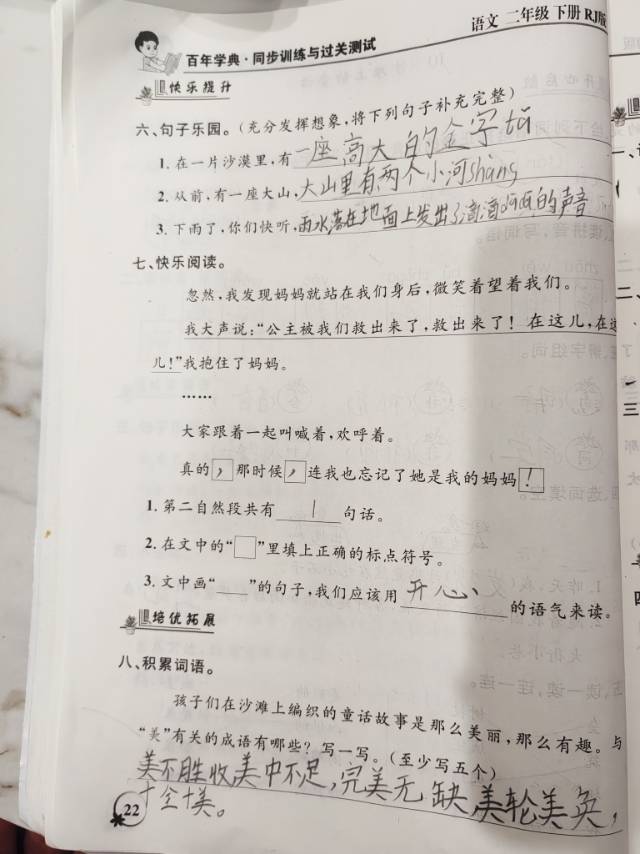 百年学典·同步训练与过关测试
语文 二年级 下册 RJ版
快乐提升
六、句子乐园。(充分发挥想象,将下列句子补充完整)
1. 在一片沙漠里,有一座高大的金字tǎ
2. 从前,有一座大山,大山里有两个小河shāng
3. 下雨了,你们快听,雨水落在地面上发出了滴滴嗒嗒的声音
七、快乐阅读。
忽然,我发现妈妈就站在我们身后,微笑着望着我们。
我大声说:“公主被我们救出来了,救出来了!在这儿,在这
儿!”我抱住了妈妈。
……
大家跟着一起叫喊着,欢呼着。
真的,那时候,连我也忘记了她是我的妈妈!
1. 第二自然段共有 1 句话。
2. 在文中的“□”里填上正确的标点符号。
3. 文中画“___”的句子,我们应该用 开心 的语气来读。
培优拓展
八、积累词语。
孩子们在沙滩上编织的童话故事是那么美丽,那么有趣。与
“美”有关的成语有哪些?写一写。(至少写五个)
美不胜收,美中不足,完美无缺,美轮美奂,
十全十美。
22